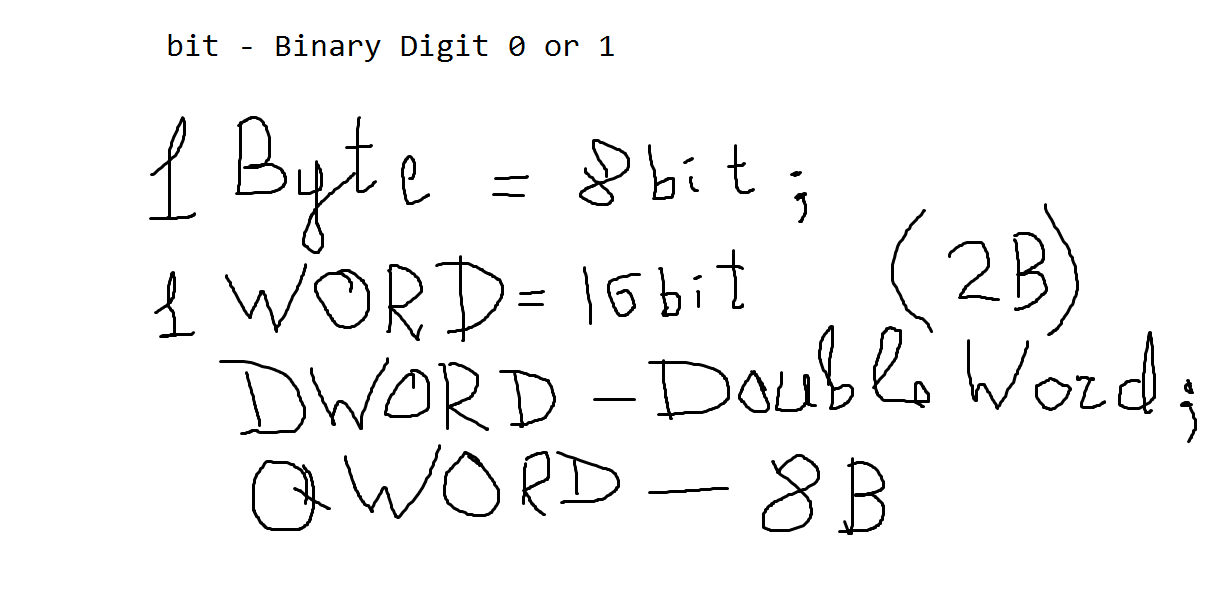 bit - Binary Digit 0 or 1
1 Byte = 8bit;
1 WORD= 16bit (2B)
DWORD - Double Word;
QWORD - 8B